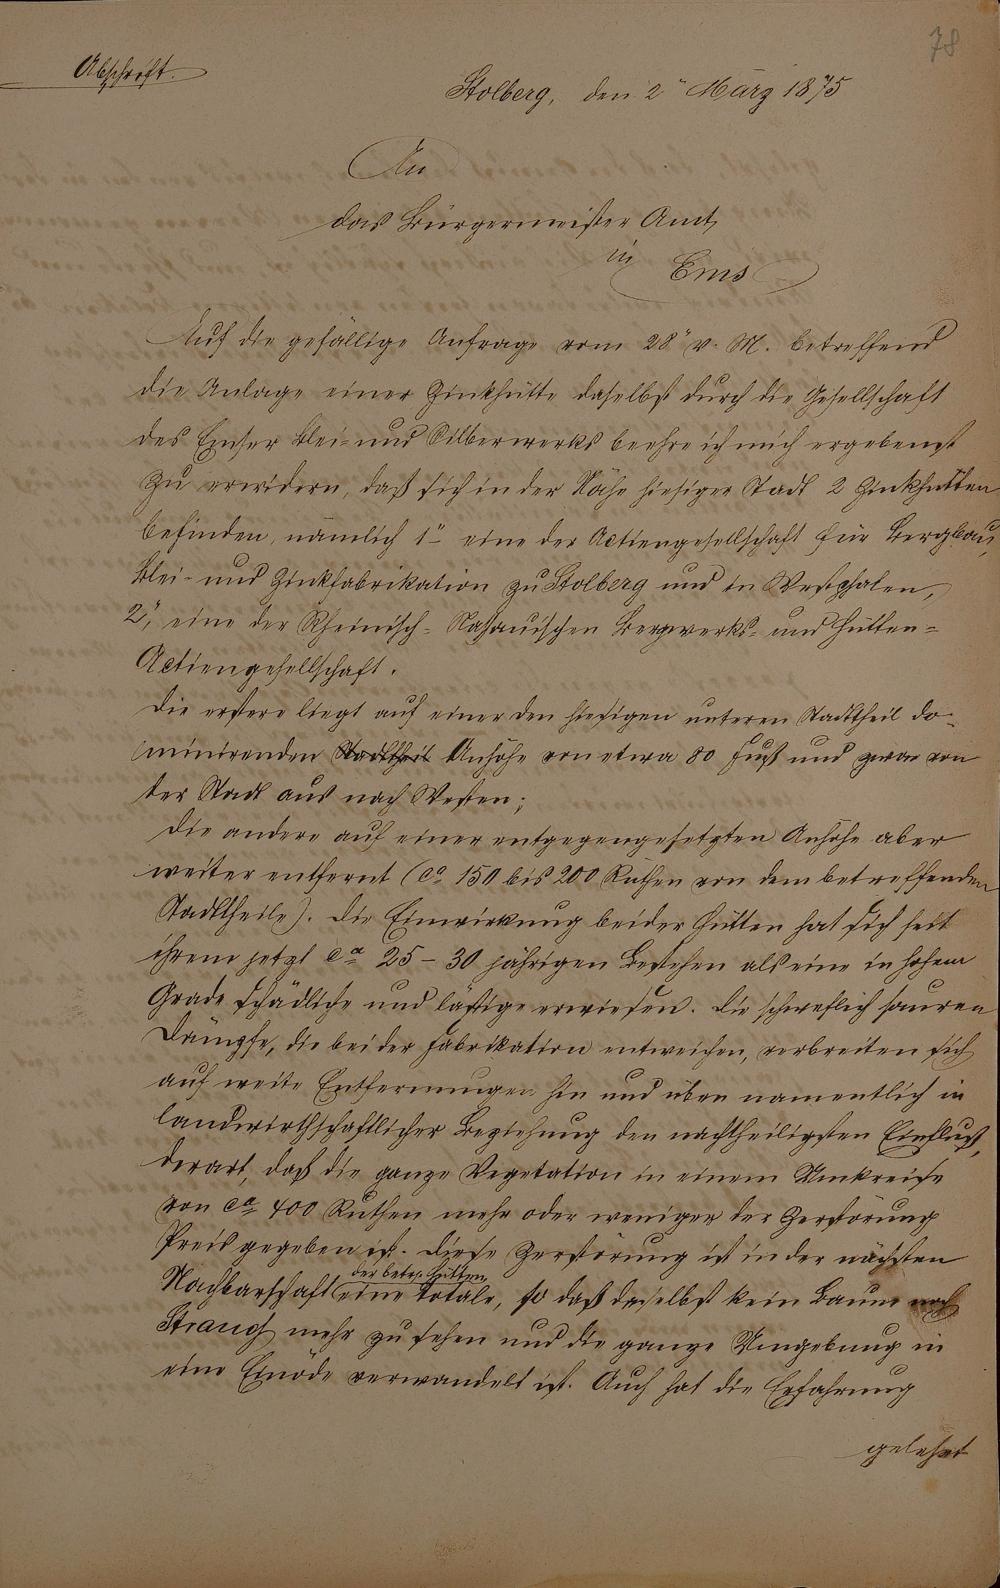 78
Abschrift.
Stolberg, den 2" März 1875
An
das Bürgermeister Amt
in
Ems
Auf die gefällige Anfrage vom 28" v. M. betreffend
die Anlage einer Zinkhütte daselbst durch die Gesellschaft
des Emser Blei- und Silberwerks beehre ich mich ergebenst
zu erwidern, daß sich in der Nähe hiesiger Stadt 2 Zinkhütten
befinden, nämlich 1" eine der Actiengesellschaft für Bergbau,
Blei- und Zinkfabrikation zu Stolberg und in Westphalen,
2", eine der Rheinisch-Nassauischen Bergwerks- und Hütten-
Actiengesellschaft.
Die erstere liegt auf einer den hiesigen unteren Stadttheil do-
minirenden Stadttheil Anhöhe von etwa 80 Fuß und zwar von
der Stadt aus nach Westen;
die andere auf einer entgegengesetzten Anhöhe aber
weiter entfernt (ca 150 bis 200 Ruthen von dem betreffenden
Stadttheile). Die Einwirkung beider Hütten hat sich seit
ihrem jetzt ca 25 - 30 jährigen Bestehen als eine in hohem
Grade schädliche und lästige erwiesen. Die schweflich sauren
Dämpfe, die bei der Fabrikation entweichen, verbreiten sich
auf weite Entfernungen hin und üben namentlich in
landwirthschaftlicher Beziehung den nachtheiligsten Einfluß,
derart, daß die ganze Vegetation in einem Umkreise
von ca 400 Ruthen mehr oder weniger der Zerstörung
Preis gegeben ist. Diese Zerstörung ist in der nächsten
der betr. Hütten
Nachbarschaft eine totale, so daß daselbst kein Baum noch
Strauch mehr zu sehen und die ganze Umgebung in
eine Einöde verwandelt ist. Auch hat die Erfahrung
gelehrt